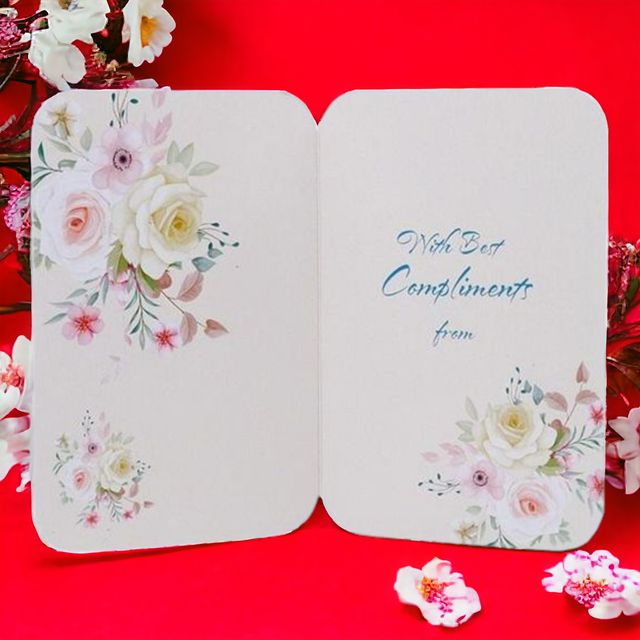 With Best
Compliments
from